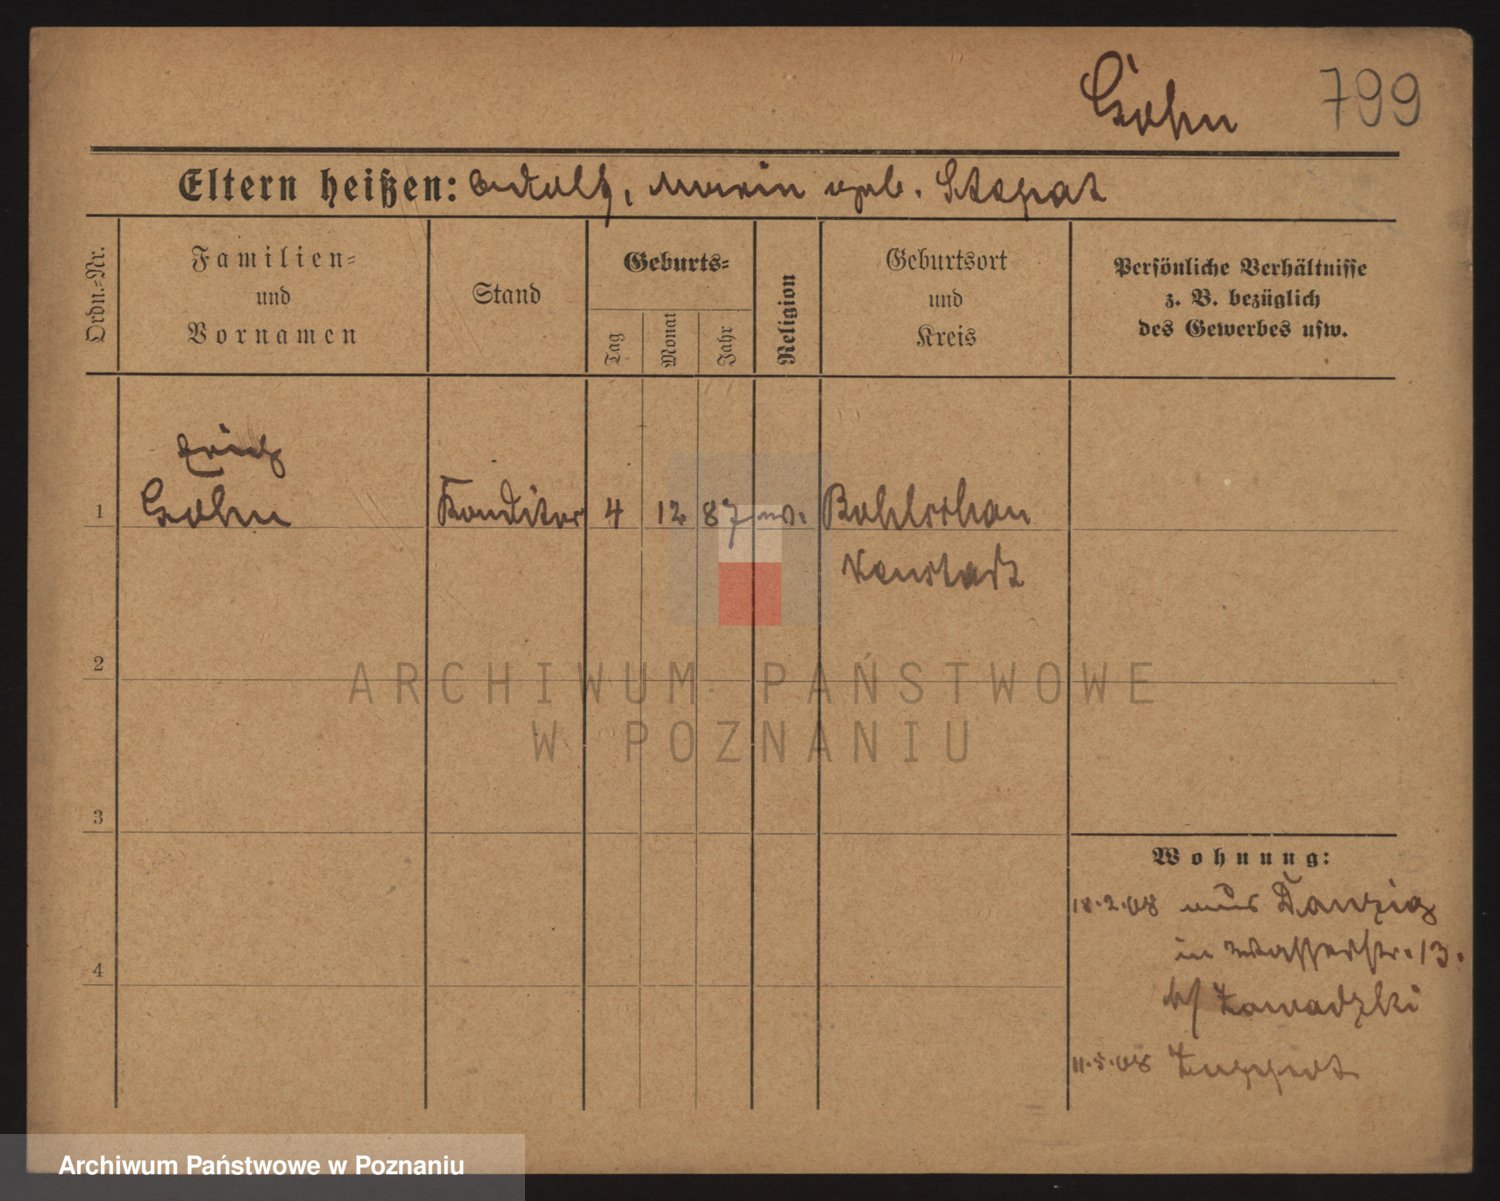 Gohn 799
Eltern heißen: Adolf, Marie geb. Stegat
Ordn.=Nr.
Familien=
und
Vornamen
Stand
Geburts=
Tag
Monat
Jahr
Religion
Geburtsort
und
Kreis
Persönliche Verhältnisse
z. B. bezüglich
des Gewerbes usw.
Erich
1 Gohn Konditor 4 12 87 ev. Bohlschau
Neustadt
2
3
4
Wohnung:
18.2.08 aus Danzig
in Wasserstr. 13.
b/ Zawadzki
11.5.08 Zoppot
ARCHIWUM PAŃSTWOWE
W POZNANIU
Archiwum Państwowe w Poznaniu